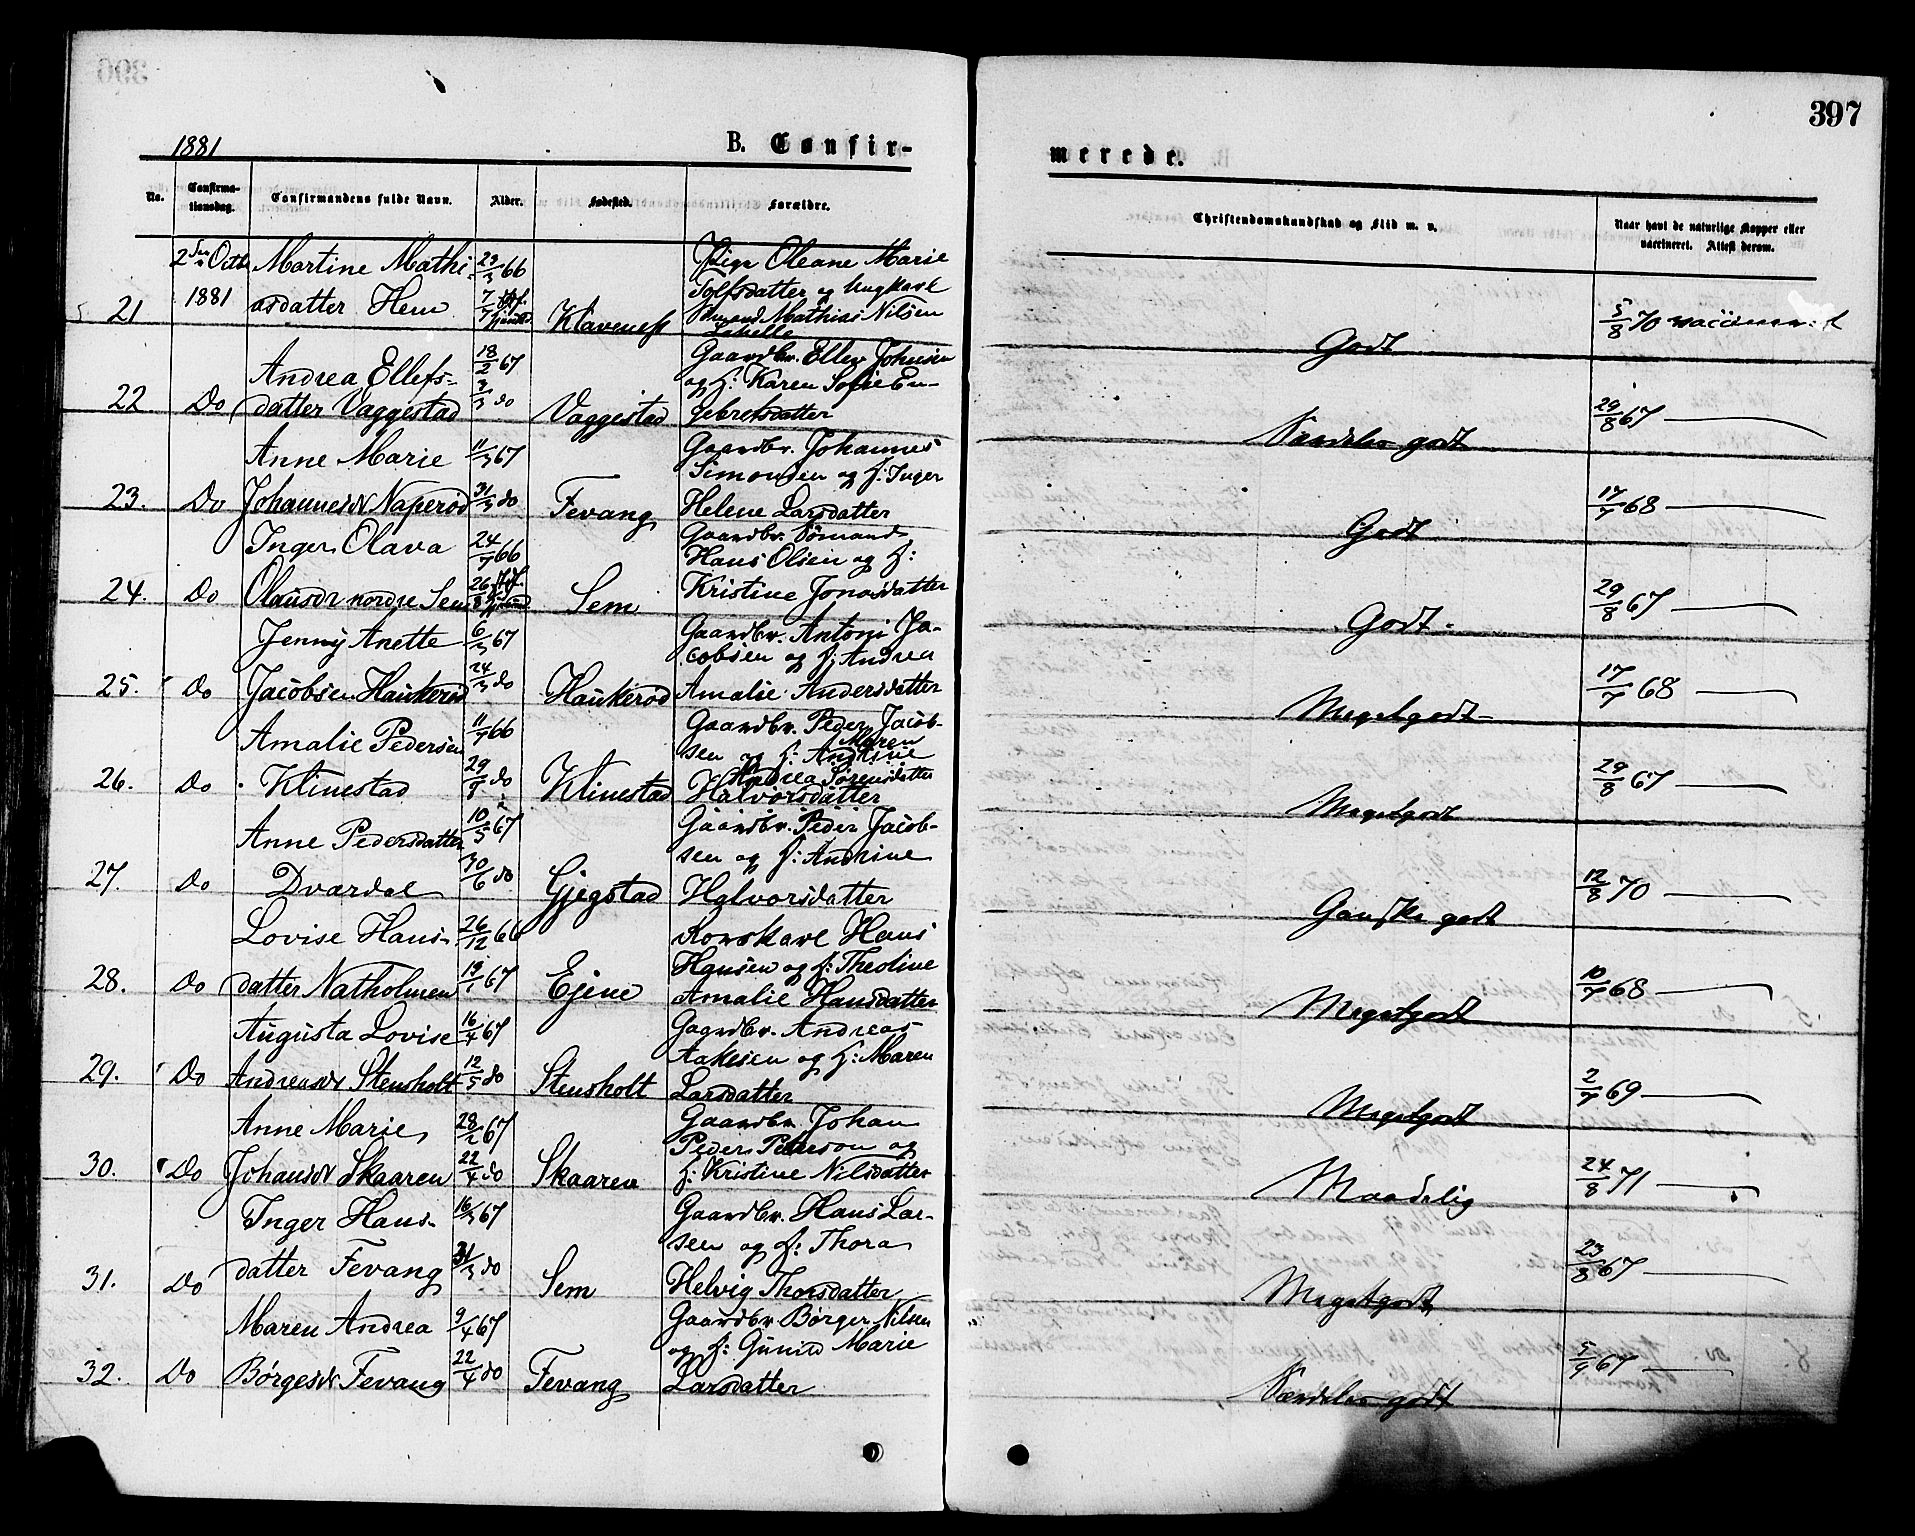 397
1881
B. Confir-
merede.
No.
Confirma-
tionsdag.
Confirmandens fulde Navn.
Alder.
Fødested.
Forældre.
Christendomskundskab og Flid m. v.
Naar havt de naturlige Kopper eller
vaccineret. Attest derom.
21 2den Octb 1881
Martine Mathi-
asdatter Hem
29/3 66
7/7
Klaveness
Pige Oleane Marie
Tolfsdatter og Ungkarl
Mathias Nilsen
Godt
5/8 70 vaccineret
22. Do
Andrea Ellefs-
datter Vaggestad
18/2 67
3/3 do
Vaggestad
Gaardbr. Ellev Johnsen
og h: Karen Sofie En-
gebretsdatter
Særdeles godt
29/8 67
23. Do
Anne Marie
Johannesdr Naperød
11/3 67
31/3 do
Fevang
Gaardbr. Johannes
Simonsen og h: Inger
Helene Larsdatter
Godt
17/7 68
24. Do
Inger Olava
Olausdr nordre Sem
24/7 66
26/8
Sem
Gaardbr. Sømand
Hans Olsen og h:
Kristine Jonasdatter
Godt.
29/8 67
25. Do
Jenny Anette
Jacobsen Haukerød
6/3 67
24/3 do
Haukerød
Gaardbr. Antoni Ja-
cobsen og h; Andrea
Amalie Andersdatter
Megetgodt
17/7 68
26. Do
Amalie Pedersen
Klinestad
11/7 66
29/8 do
Klinestad
Gaardbr. Peder Jacob-
sen og h: Andrine
Maren
Andrea Sørensdatter
Halvorsdatter
Megetgodt
29/8 67
27. Do
Anne Pedersdatter
Dværdal
10/5 67
30/6 do
Gjegstad
Gaardbr. Peder Jacob-
sen og h: Andrine
Halvorsdatter
Ganske godt
12/8 70
28. Do
Lovise Hans-
datter Natholmen
26/12 66
19/1 67
Ejene
Korskarl Hans
Hansen og h: Theoline
Amalie Hansdatter
Megetgodt
10/7 68
29. Do
Augusta Lovise
Andreasdr Stensholt
16/4 67
12/5 do
Stensholt
Gaardbr. Andreas
Aakesen og h: Maren
Larsdatter
Megetgodt
2/7 69
30. Do
Anne Marie
Johansdr Skaaren
28/2 67
22/4 do
Skaaren
Gaardbr Johan
Peder Peterson og
h: Kristine Nilsdatter
Maadelig
24/8 71
31. Do
Inger Hans-
datter Fevang
16/3 67
31/3 do
Sem
Gaardbr. Hans Lar-
sen og h: Thora
Helvig Thorsdatter
Megetgodt
23/8 67
32. Do
Maren Andrea
Børgesdr Fevang
9/4 67
22/4 do
Fevang
Gaardbr Børger Nilsen
og h: Gunild Marie
Larsdatter
Særdeles godt
5/9 67